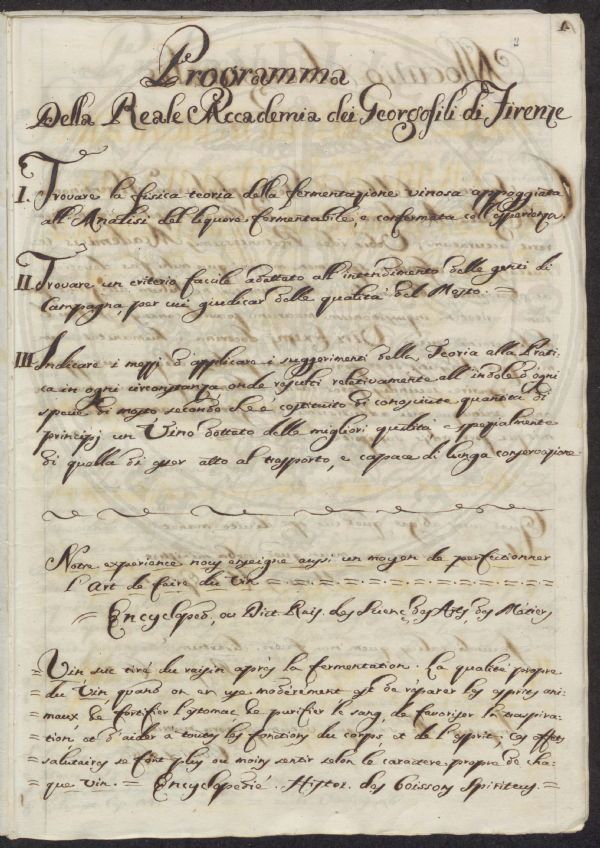 2
1.
Programma
Della Reale Accademia dei Georgofili di Firenze
I. Trovare la fisica teoria della fermentazione vinosa appoggiata
all'Analisi del liquore fermentabile, e confermata coll'esperienza.
II. Trovare un criterio facile adattato all'intendimento delle genti di
Campagna, per cui giudicar delle qualità del Mosto. =
III. Indicare i mezzi d'applicare i suggerimenti della Teoria alla Prati-
ca in ogni circonstanza onde resulti relativamente all'indole d'ogni
specie di mosto secondo che è costituito di conosciute quantità di
principj un Vino dottato delle migliori qualità e spezialmente
di quella di esser atto al trasporto, e capace di lunga conservazione.
Notre experience nous enseigne aussi un moyen de perfectionner
l'Art de faire du Vin.
= Encycloped. ou Dict. Rais. des Scienc. des Arts, des Metiers
= Vin suc tiré du raisin après la fermentation. La qualité propre
= du Vin, quand on en use modèrement est de réparer les esprits ani-
= maux de fortifier l'estomac de purifier le sang, de favoriser la traspira-
= tion et d'aider a toutes les fonctions du corps et de l'esprit; ces effets
= salutaires se font plus ou moins sentir selon le caractere propre de cha-
= que vin. = Encyclopedié. Histoi. des boissons Spiriteus. =